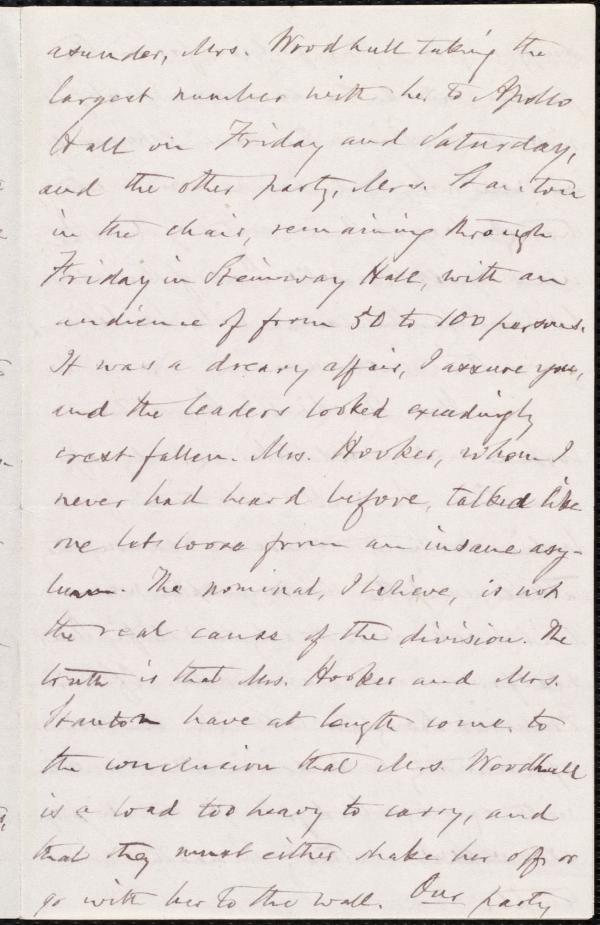 asunder, Mrs. Woodhull taking the
largest number with her to Apollo
Hall on Friday and Saturday,
and the other party, Mrs. Stanton
in the chair, remaining through
Friday in Steinway Hall, with an
audience of from 50 to 100 persons.
It was a dreary affair, I assure you,
and the leaders looked exceedingly
crest fallen. Mrs. Hooker, whom I
never had heard before, talked like
one let loose from an insane asy-
lum. The nominal, I believe, is not
the real cause of the division. The
truth is that Mrs. Hooker and Mrs.
Stanton have at length come to
the conclusion that Mrs. Woodhull
is a load too heavy to carry, and
that they must either shake her off or
go with her to the wall. Our party